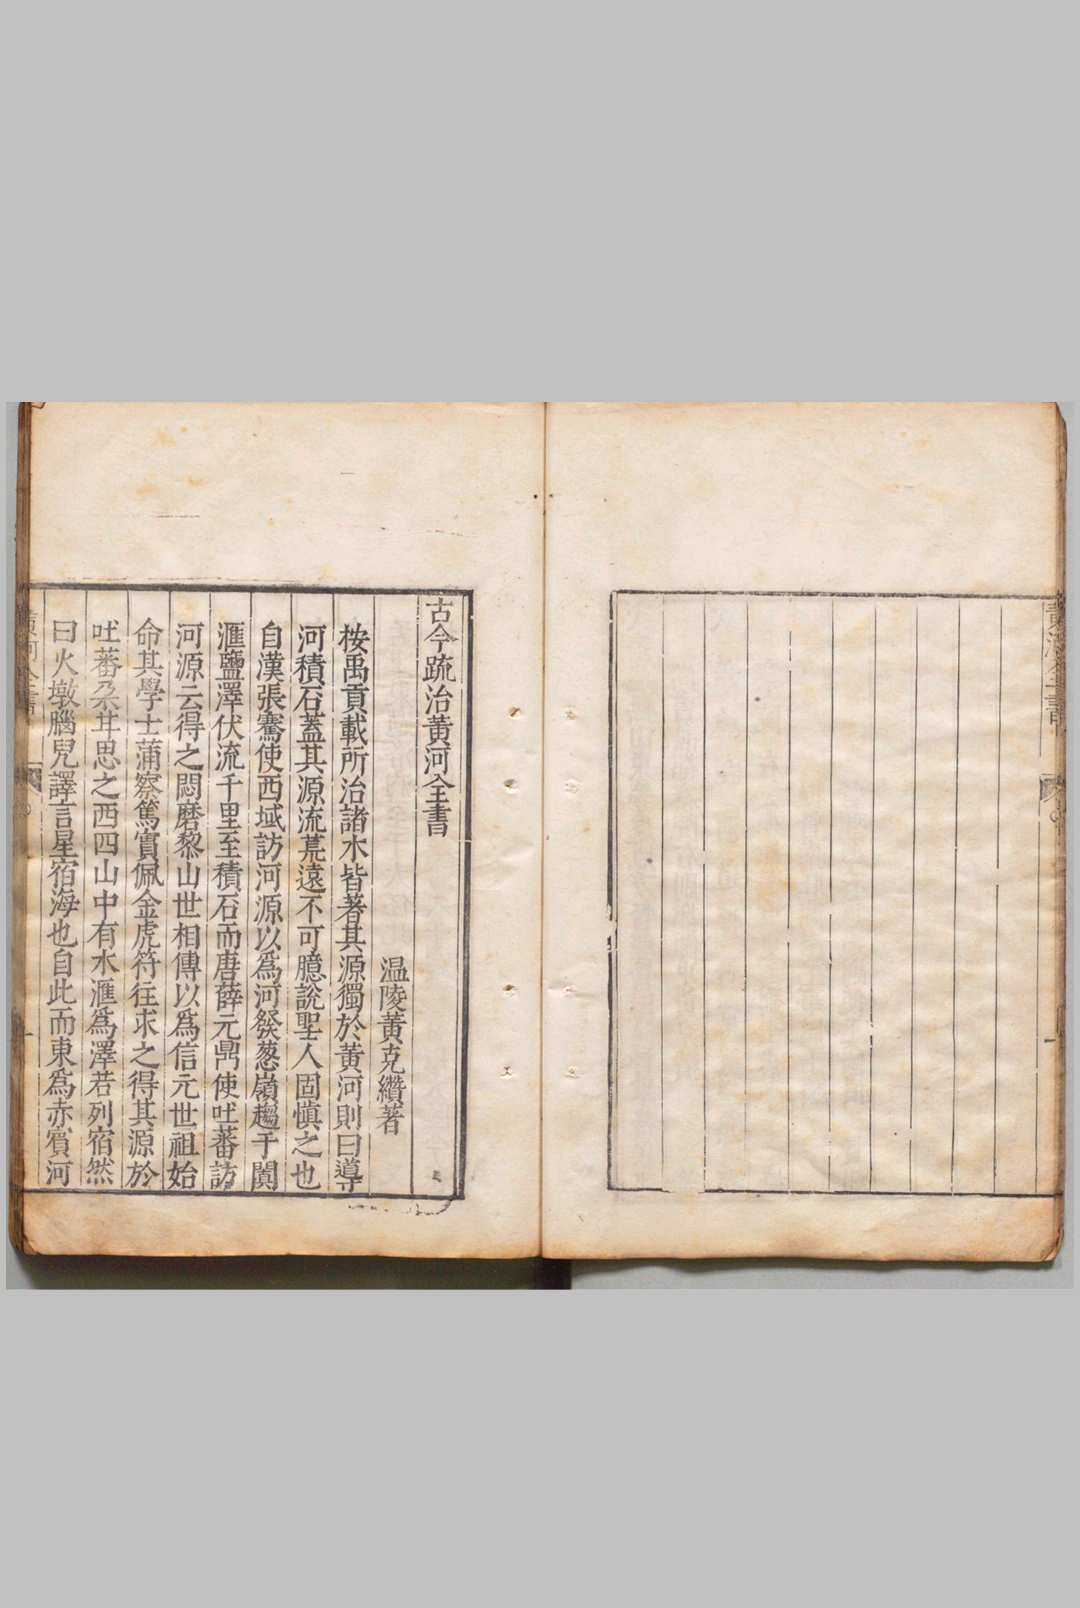 古今疏治黄河全書
温陵黄克纘著
按禹貢載所治諸水皆著其源獨於黄河則曰導
河積石蓋其源流荒遠不可臆說聖人固慎之也
自漢張騫使西域訪河源以爲河發葱嶺趨于闐
滙鹽澤伏流千里至積石而唐薛元鼎使吐蕃訪
河源云得之悶磨黎山世相傳以爲信元世祖始
命其學士蒲察篤實佩金虎符往求之得其源於
吐蕃朶甘思之西四山中有水滙爲澤若列宿然
曰火墩腦兒譯言星宿海也自此而東爲赤賓河